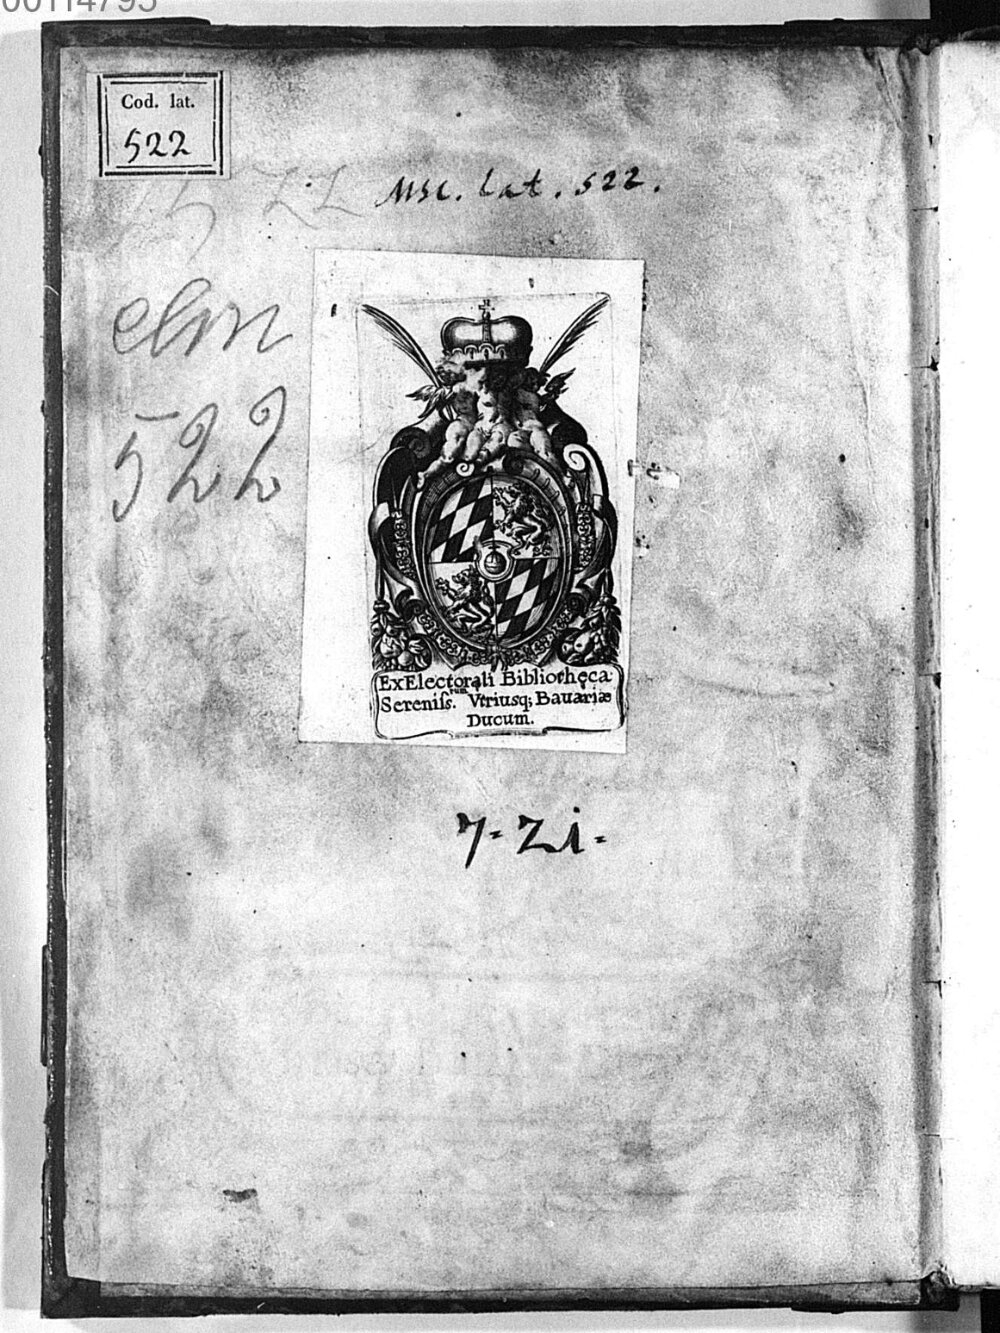 00114795
Cod. lat.
522
Msc. lat. 522.
clm
522
Ex Electorali Bibliotheca
Sereniſs.rum Vtriusq; Bauariæ
Ducum.
7- Zi-